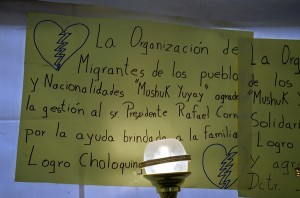 La Organización de
Migrantes de los pueblo
y Nacionalidades "Mushuk Yuyay" agrade
la gestión al sr. Presidente Rafael Corre
por la ayuda brindada a la familia
Logro Choloquing
La Or
de los
"Mushuk
Solidar
Logro
y agr
Dctr.